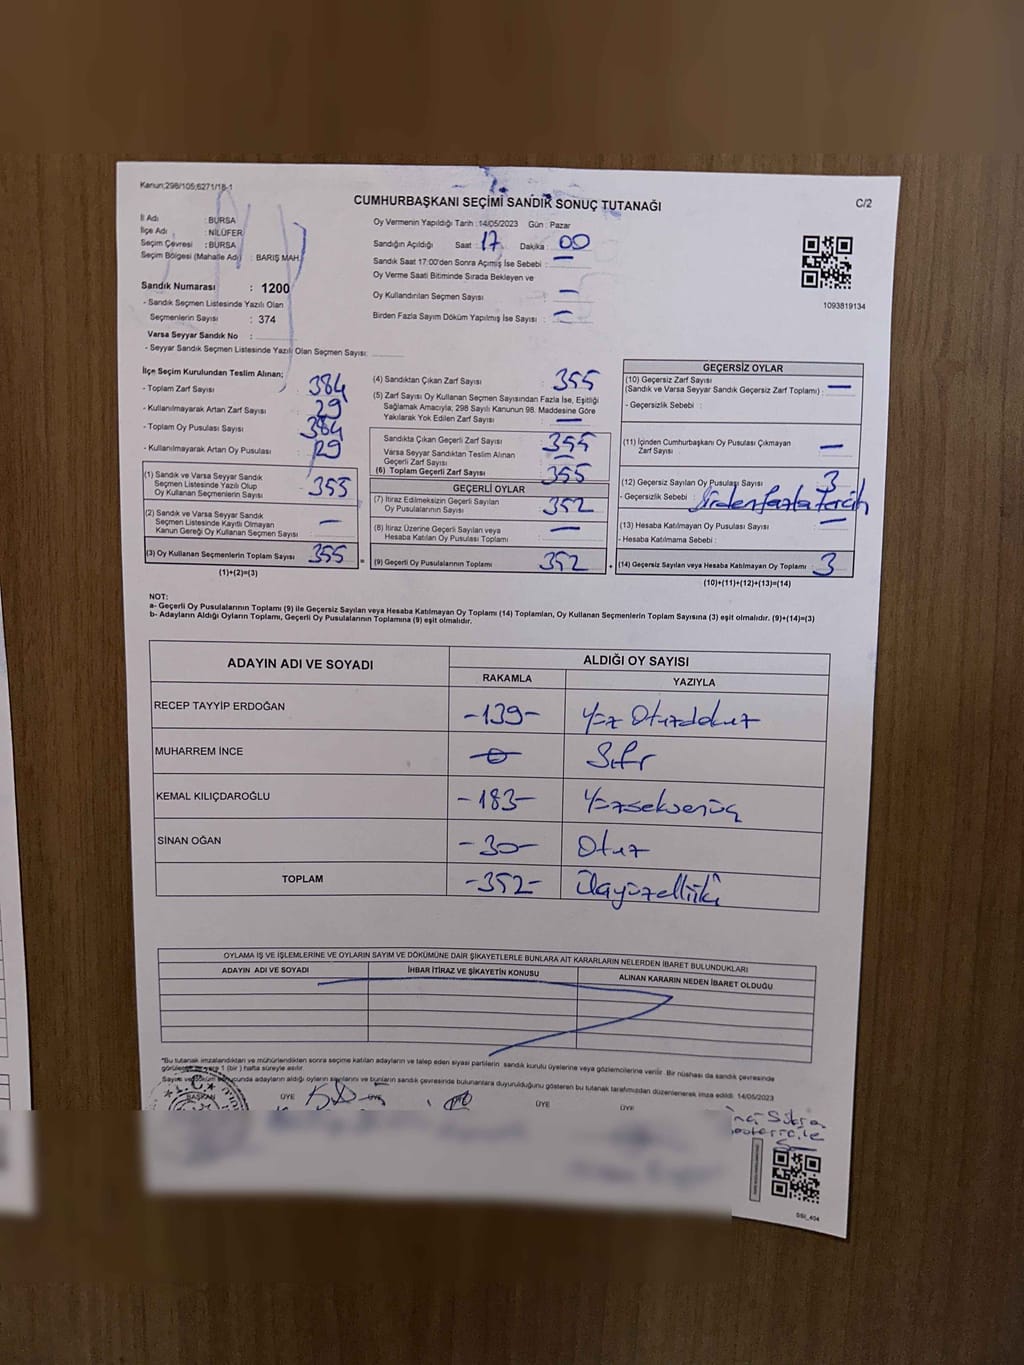 Kanun;298/105;6271/18-1
CUMHURBAŞKANI SEÇİMİ SANDIK SONUÇ TUTANAĞI
C/2
İl Adı : BURSA
İlçe Adı : NİLÜFER
Seçim Çevresi : BURSA
Seçim Bölgesi (Mahalle Adı) : BARIŞ MAH.
Sandık Numarası : 1200
- Sandık Seçmen Listesinde Yazılı Olan
Seçmenlerin Sayısı : 374
Varsa Seyyar Sandık No :
- Seyyar Sandık Seçmen Listesinde Yazılı Olan Seçmen Sayısı:
Oy Vermenin Yapıldığı Tarih :14/05/2023 Gün : Pazar
Sandığın Açıldığı Saat : 17 Dakika : 00
Sandık Saat 17:00'den Sonra Açımış İse Sebebi : —
Oy Verme Saati Bitiminde Sırada Bekleyen ve
Oy Kullandırılan Seçmen Sayısı : —
Birden Fazla Sayım Döküm Yapılmış İse Sayısı : —
1093819134
İlçe Seçim Kurulundan Teslim Alınan;
- Toplam Zarf Sayısı : 384
- Kullanılmayarak Artan Zarf Sayısı : 29
- Toplam Oy Pusulası Sayısı : 384
- Kullanılmayarak Artan Oy Pusulası : 29
(1) Sandık ve Varsa Seyyar Sandık
Seçmen Listesinde Yazılı Olup
Oy Kullanan Seçmenlerin Sayısı : 355
(2) Sandık ve Varsa Seyyar Sandık
Seçmen Listesinde Kayıtlı Olmayan
Kanun Gereği Oy Kullanan Seçmen Sayısı : —
(3) Oy Kullanan Seçmenlerin Toplam Sayısı : 355
(1)+(2)=(3)
(4) Sandıktan Çıkan Zarf Sayısı : 355
(5) Zarf Sayısı Oy Kullanan Seçmen Sayısından Fazla İse, Eşitliği
Sağlamak Amacıyla; 298 Sayılı Kanunun 98. Maddesine Göre
Yakılarak Yok Edilen Zarf Sayısı : —
Sandıkta Çıkan Geçerli Zarf Sayısı : 355
Varsa Seyyar Sandıktan Teslim Alınan
Geçerli Zarf Sayısı : —
(6) Toplam Geçerli Zarf Sayısı : 355
GEÇERLİ OYLAR
(7) İtiraz Edilmeksizin Geçerli Sayılan
Oy Pusulalarının Sayısı : 352
(8) İtiraz Üzerine Geçerli Sayılan veya
Hesaba Katılan Oy Pusulası Toplamı : —
(9) Geçerli Oy Pusulalarının Toplamı : 352
GEÇERSİZ OYLAR
(10) Geçersiz Zarf Sayısı
(Sandık ve Varsa Seyyar Sandık Geçersiz Zarf Toplamı) : —
- Geçersizlik Sebebi :
(11) İçinden Cumhurbaşkanı Oy Pusulası Çıkmayan
Zarf Sayısı : —
(12) Geçersiz Sayılan Oy Pusulası Sayısı : 3
- Geçersizlik Sebebi : Birden fazla tercih
(13) Hesaba Katılmayan Oy Pusulası Sayısı : —
- Hesaba Katılmama Sebebi :
(14) Geçersiz Sayılan veya Hesaba Katılmayan Oy Toplamı : 3
(10)+(11)+(12)+(13)=(14)
NOT:
a- Geçerli Oy Pusulalarının Toplamı (9) ile Geçersiz Sayılan veya Hesaba Katılmayan Oy Toplamı (14) Toplamları, Oy Kullanan Seçmenlerin Toplam Sayısına (3) eşit olmalıdır. (9)+(14)=(3)
b- Adayların Aldığı Oyların Toplamı, Geçerli Oy Pusulalarının Toplamına (9) eşit olmalıdır.
ADAYIN ADI VE SOYADI ALDIĞI OY SAYISI
RAKAMLA YAZIYLA
RECEP TAYYİP ERDOĞAN -139- Yüz Otuzdokuz
MUHARREM İNCE -0- Sıfır
KEMAL KILIÇDAROĞLU -183- Yüzseksenüç
SİNAN OĞAN -30- Otuz
TOPLAM -352- Üçyüzelliiki
OYLAMA İŞ VE İŞLEMLERİNE VE OYLARIN SAYIM VE DÖKÜMÜNE DAİR ŞİKAYETLERLE BUNLARA AİT KARARLARIN NELERDEN İBARET BULUNDUKLARI
ADAYIN ADI VE SOYADI İHBAR İTİRAZ VE ŞİKAYETİN KONUSU ALINAN KARARIN NEDEN İBARET OLDUĞU
*Bu tutanak imzalandıktan ve mühürlendikten sonra seçime katılan adayların ve talep eden siyasi partilerin sandık kurulu üyelerine veya gözlemcilerine verilir. Bir nüshası da sandık çevresinde
görülecek bir yere 1 (bir ) hafta süreyle asılır.
Sayım ve döküm sonucunda adayların aldığı oyların sayılarını ve bunların sandık çevresinde bulunanlara duyurulduğunu gösteren bu tutanak tarafımızdan düzenlenerek imza edildi. 14/05/2023
BAŞKAN ÜYE ÜYE ÜYE ÜYE
SSI_404